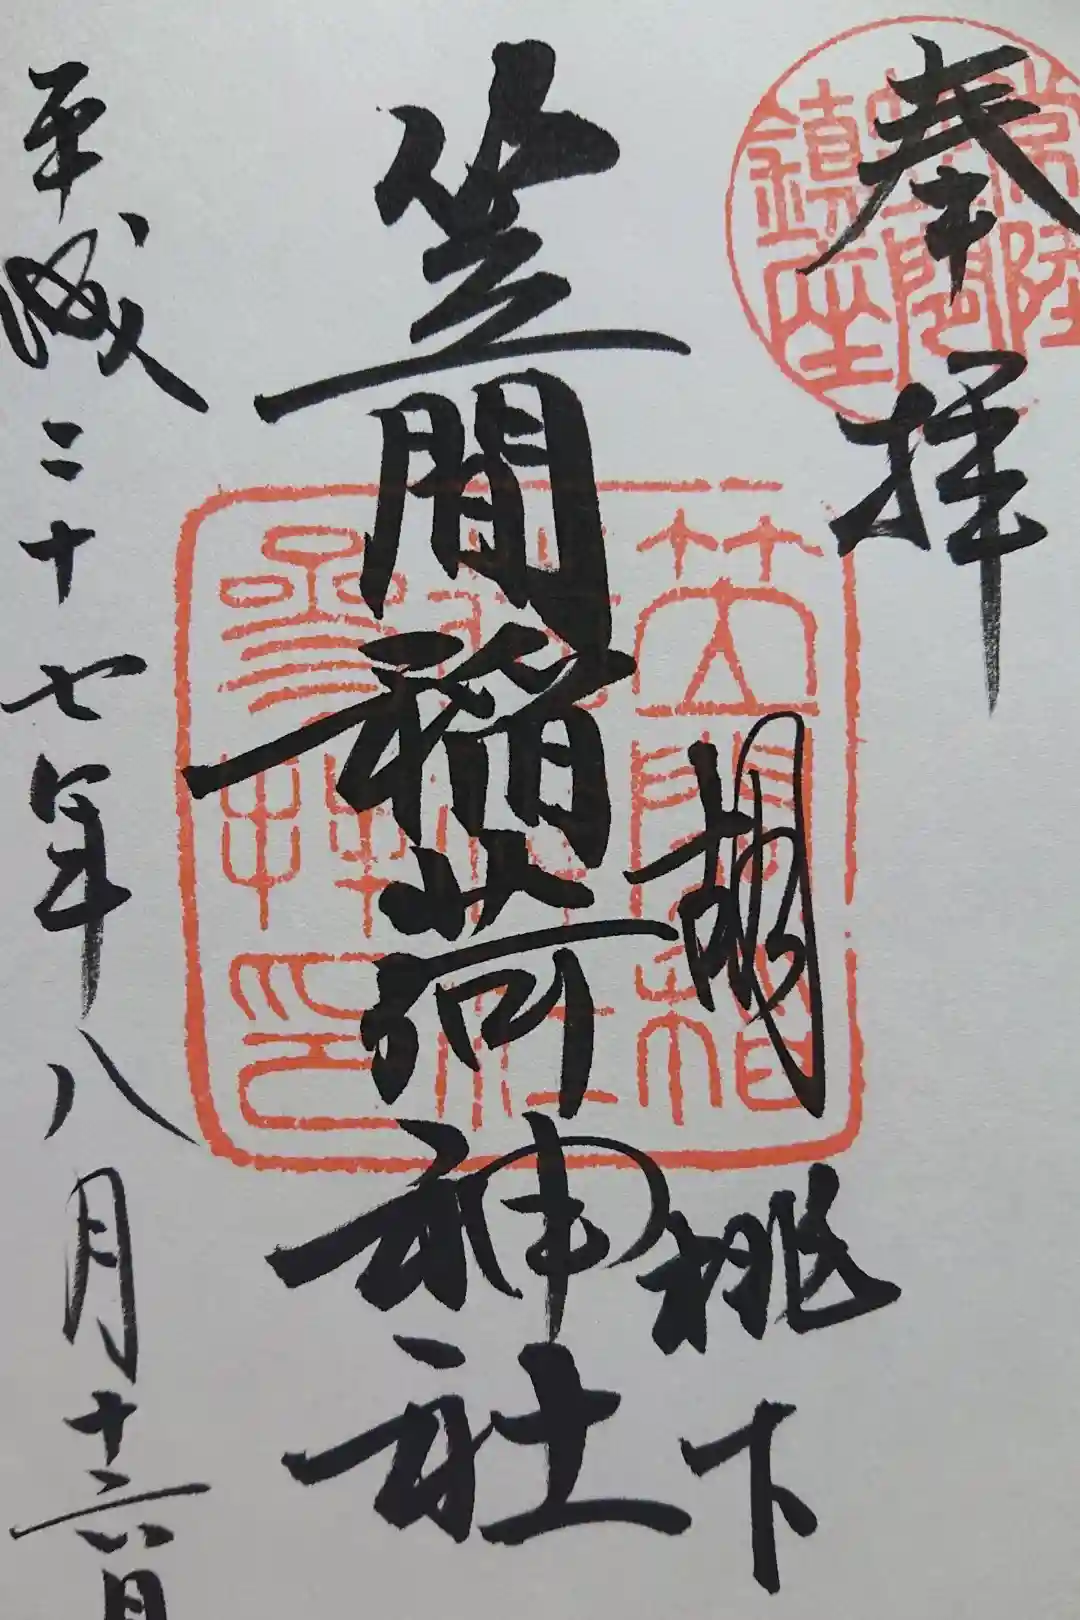 奉拝
常陸
笠間
鎮座
胡桃下
笠間稲荷神社
笠間稲
荷神社
參拜印
平成二十七年八月十六日